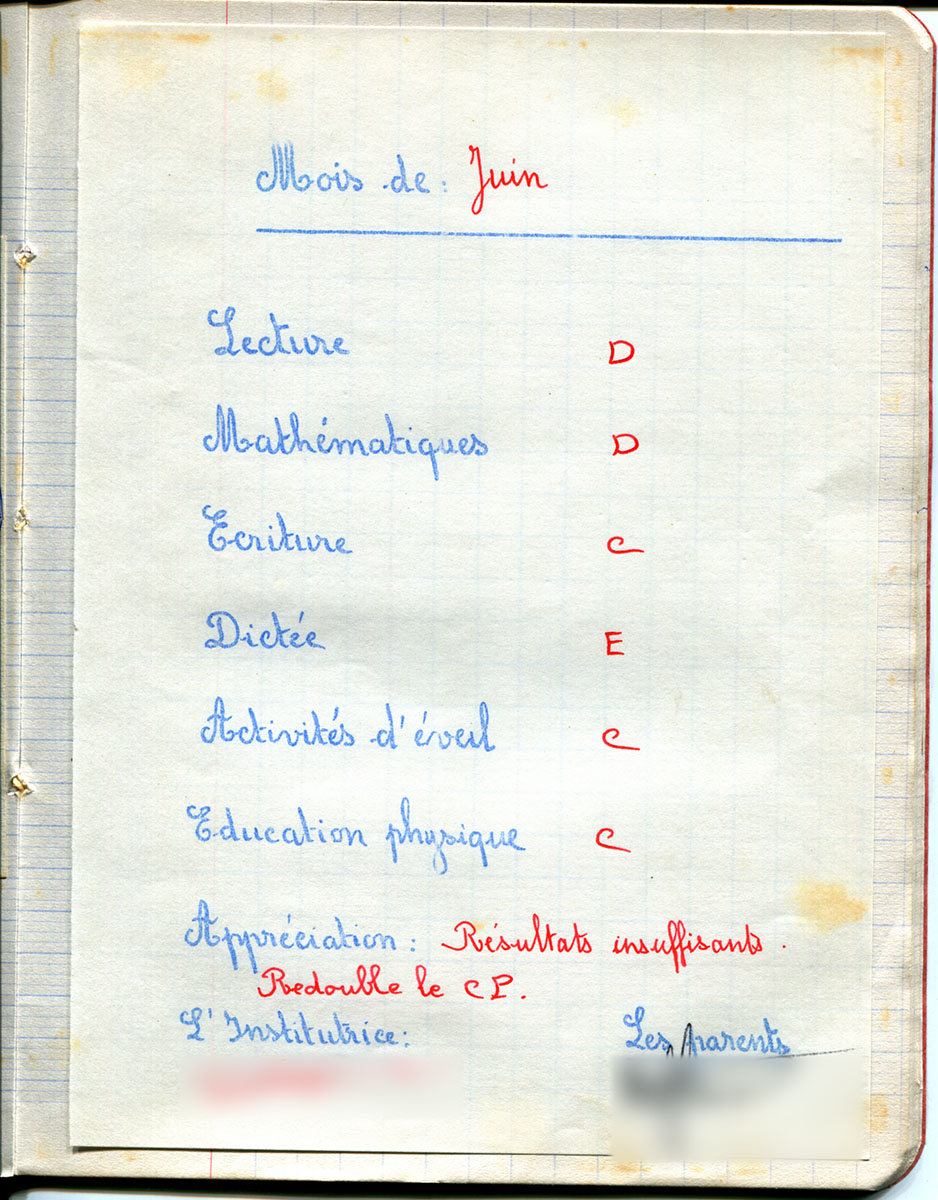 Mois de : Juin
Lecture D
Mathématiques D
Ecriture C
Dictée E
Activités d'éveil C
Education physique C
Appréciation : Résultats insuffisants.
Redouble le CP.
L'Institutrice : Les parents